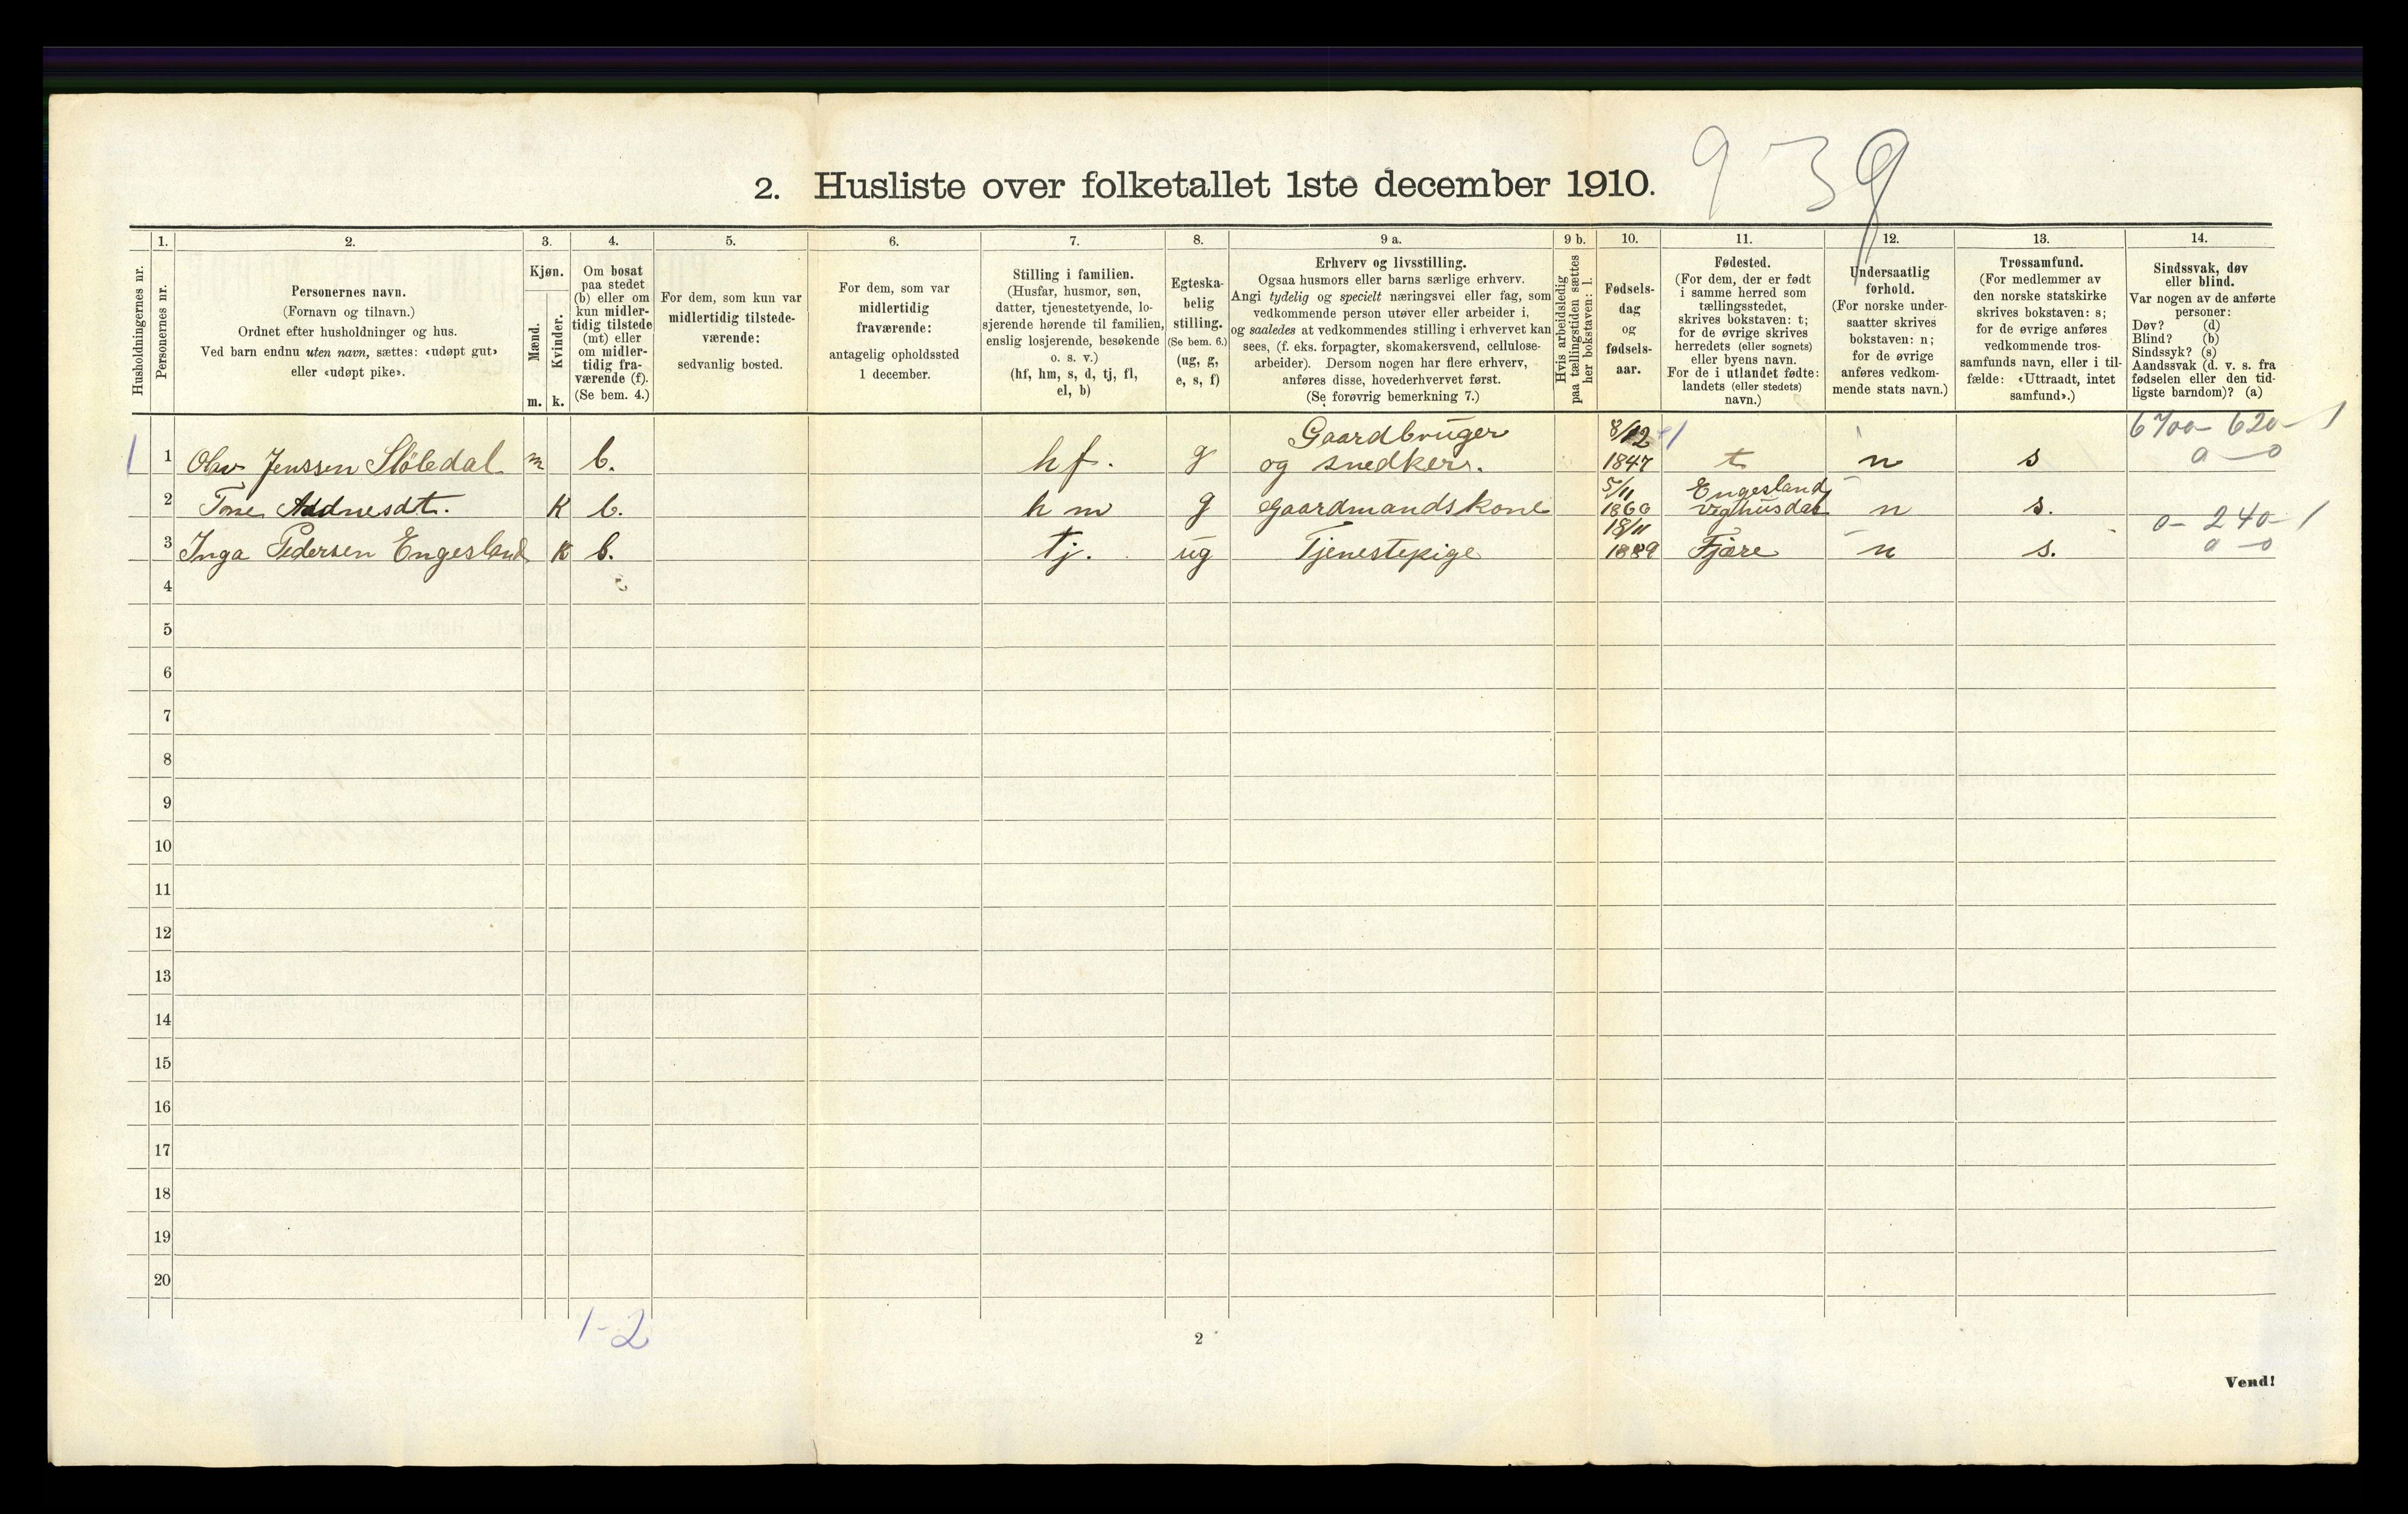 9 3 9
2. Husliste over folketallet 1ste december 1910.
Husholdningernes nr.
1. Personernes nr.
2.
Personernes navn.
(Fornavn og tilnavn.)
Ordnet efter husholdninger og hus.
Ved barn endnu uten navn, sættes: «udøpt gut»
eller «udøpt pike».
3.
Kjøn.
Mænd. Kvinder.
m. k.
4.
Om bosat
paa stedet
(b) eller om
kun midler-
tidig tilstede
(mt) eller
om midler-
tidig fra-
værende (f).
(Se bem. 4.)
5.
For dem, som kun var
midlertidig tilstede-
værende:
sedvanlig bosted.
6.
For dem, som var
midlertidig
fraværende:
antagelig opholdssted
1 december.
7.
Stilling i familien.
(Husfar, husmor, søn,
datter, tjenestetyende, lo-
sjerende hørende til familien,
enslig losjerende, besøkende
o. s. v.)
(hf, hm, s, d, tj, fl,
el, b)
8.
Egteska-
belig
stilling.
(Se bem. 6.)
(ug, g,
e, s, f)
9 a.
Erhverv og livsstilling.
Ogsaa husmors eller barns særlige erhverv.
Angi tydelig og specielt næringsvei eller fag, som
vedkommende person utøver eller arbeider i,
og saaledes at vedkommendes stilling i erhvervet kan
sees, (f. eks. forpagter, skomakersvend, cellulose-
arbeider). Dersom nogen har flere erhverv,
anføres disse, hovederhvervet først.
(Se forøvrig bemerkning 7.)
9 b.
Hvis arbeidsledig
paa tællingstiden sættes
her bokstaven: l.
10.
Fødsels-
dag
og
fødsels-
aar.
11.
Fødested.
(For dem, der er født
i samme herred som
tællingsstedet,
skrives bokstaven: t;
for de øvrige skrives
herredets (eller sognets)
eller byens navn.
For de i utlandet fødte:
landets (eller stedets)
navn.)
12.
Undersaatlig
forhold.
(For norske under-
saatter skrives
bokstaven: n;
for de øvrige
anføres vedkom-
mende stats navn.)
13.
Trossamfund.
(For medlemmer av
den norske statskirke
skrives bokstaven: s;
for de øvrige anføres
vedkommende tros-
samfunds navn, eller i til-
fælde: «Uttraadt, intet
samfund».)
14.
Sindssvak, døv
eller blind.
Var nogen av de anførte
personer:
Døv? (d)
Blind? (b)
Sindssyk? (s)
Aandssvak (d. v. s. fra
fødselen eller den tid-
ligste barndom)? (a)
Gaardbruger 8/12 6700- 620- 1
1 1 Olav Jenssen Slöledal m b. hf. g og snedker. 1847 t n s a - 0
5/11 Engesland
2 Tone Addnesdt. K b. hm g Gaardmandskone 1860 n s.
18/11 0- 240- 1
3 Inga Pedersen Engesland K b. tj. ug Tjenestepige 1889 Fjære n s. a - 0
4
5
6
7
8
9
10
11
12
13
14
15
16
17
18
19
20
1-2
2
Vend!